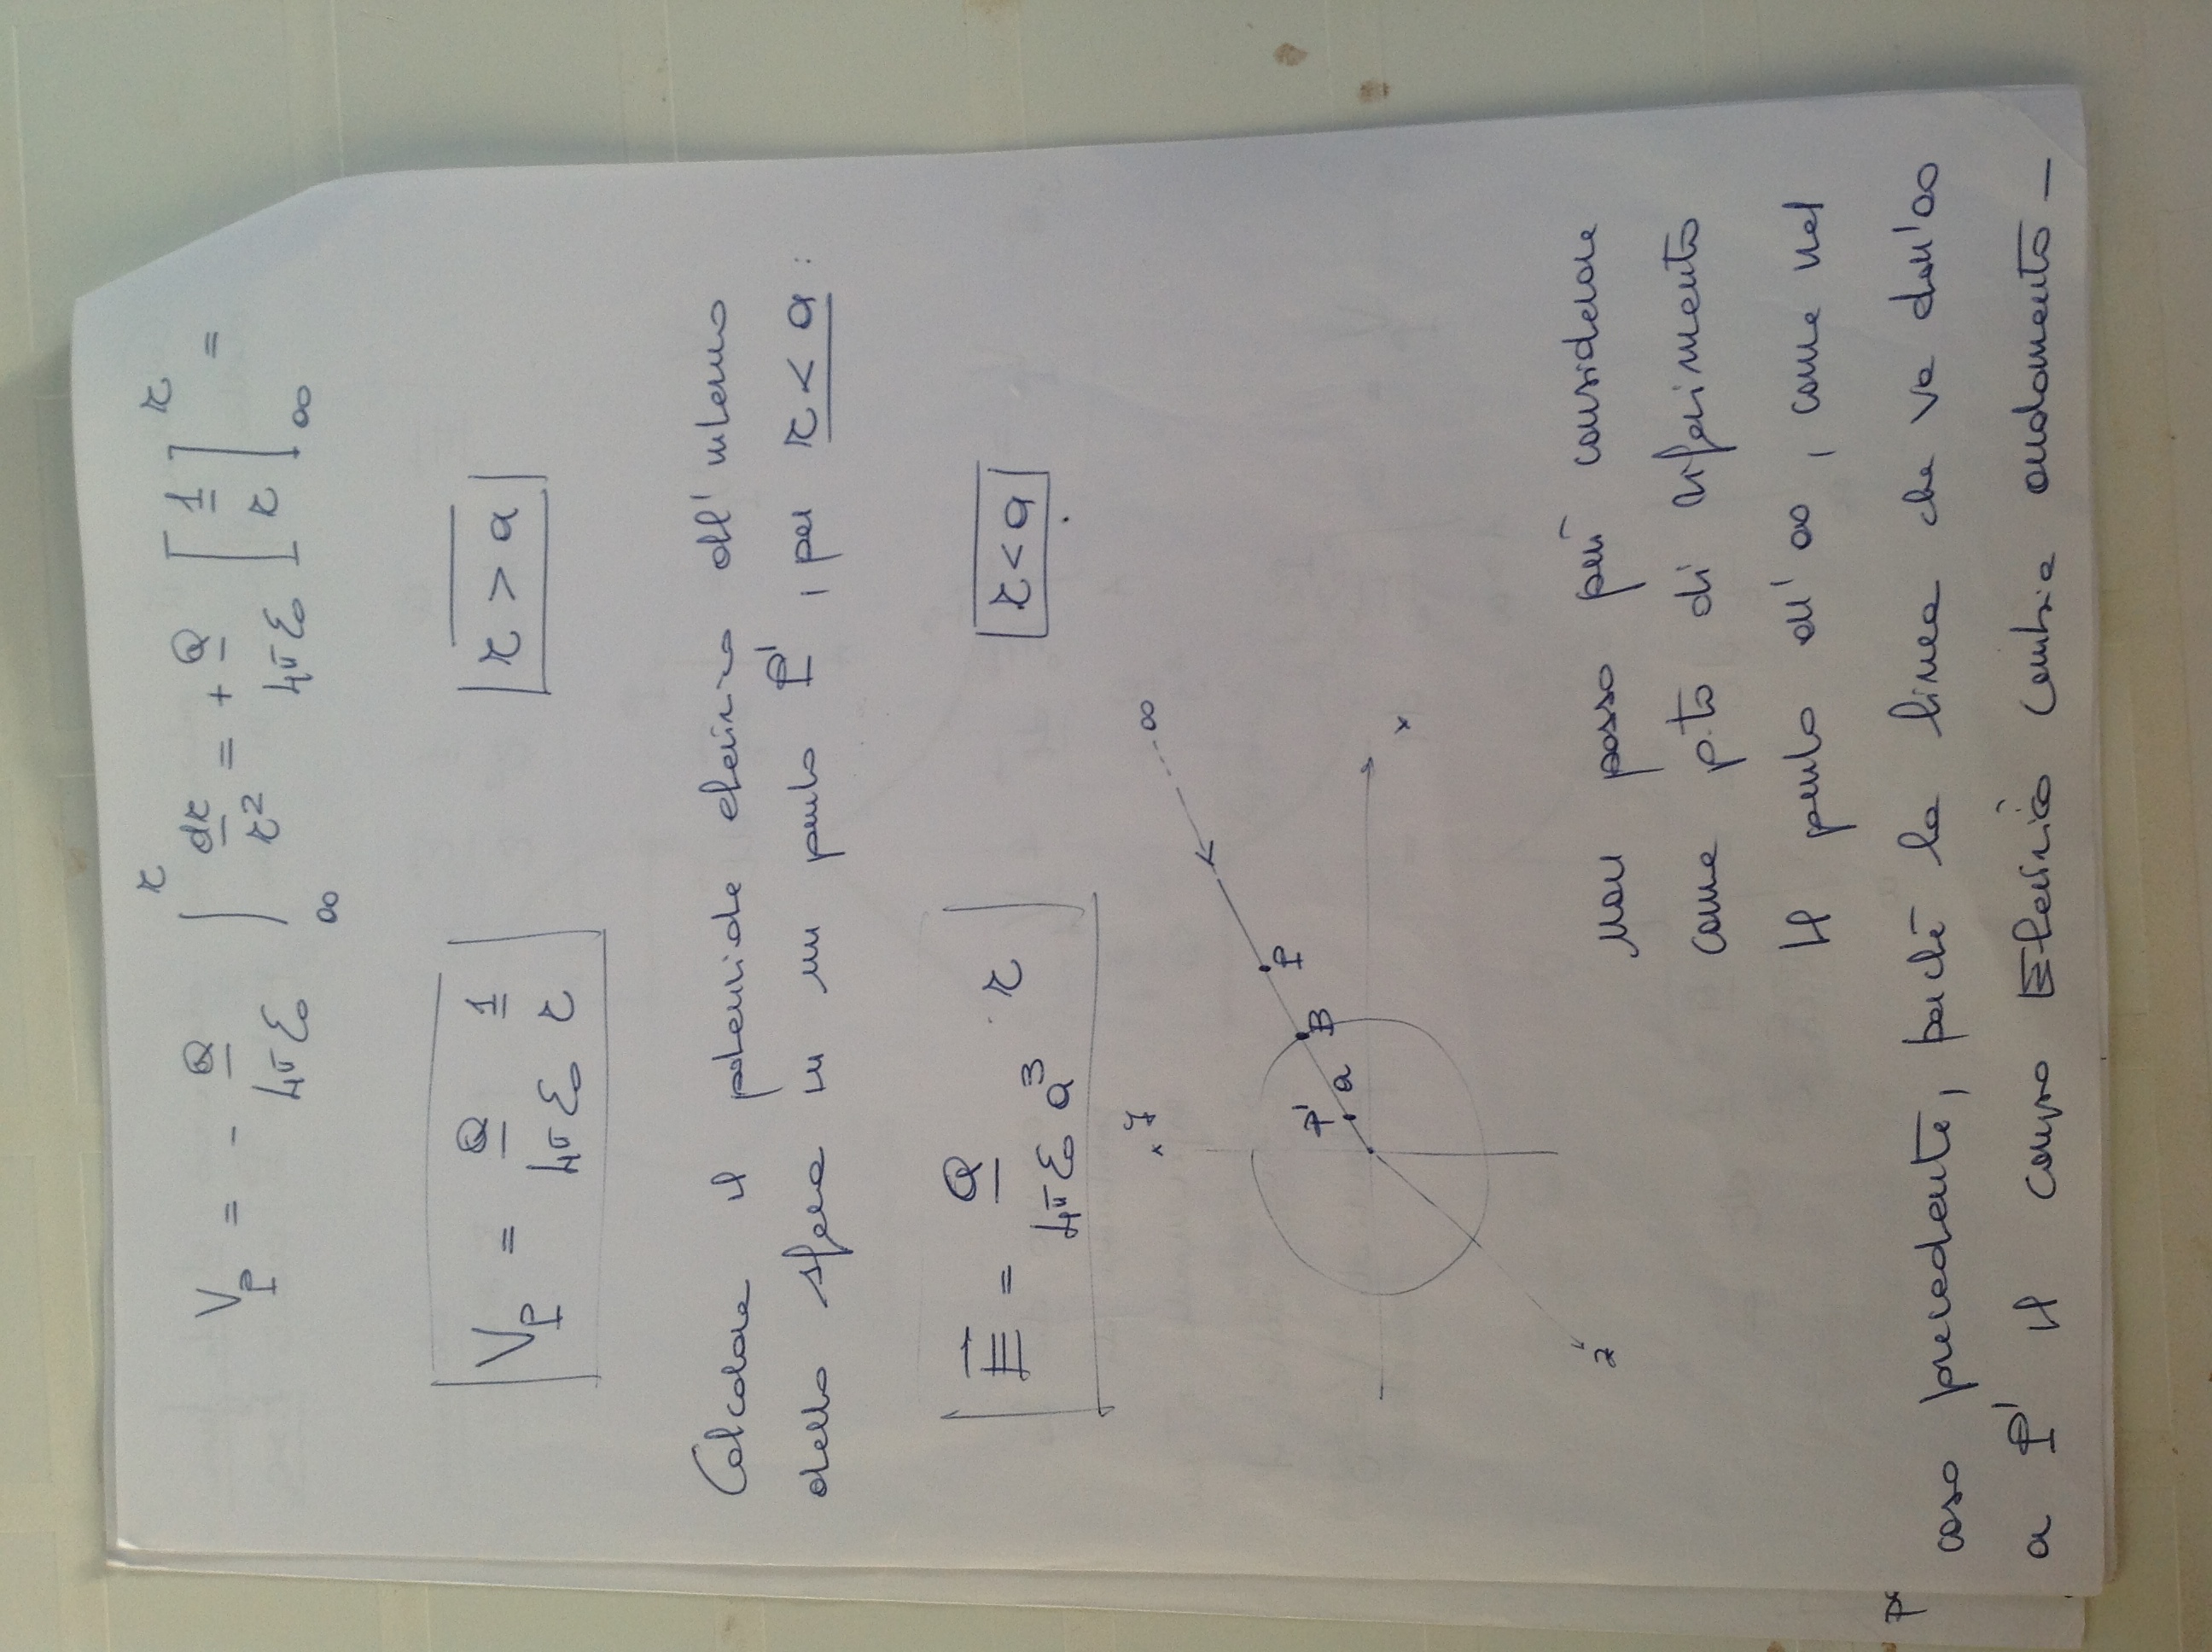 V_P = - Q/4πε₀ ∫_∞^r dr/r² = + Q/4πε₀ [1/r]_∞^r =
V_P = Q/4πε₀ 1/r    r > a
Calcolare il potenziale elettrico all'interno
della sfera in un punto P', per r < a :
E⃗ = Q/4πε₀a³ · r    r < a
y
∞
P
P' a B
x
z
non posso più considerare
come p.to di riferimento
il punto all'∞, come nel
caso precedente, perché la linea che va dall'∞
a P' il campo Elettrico cambia andamento -